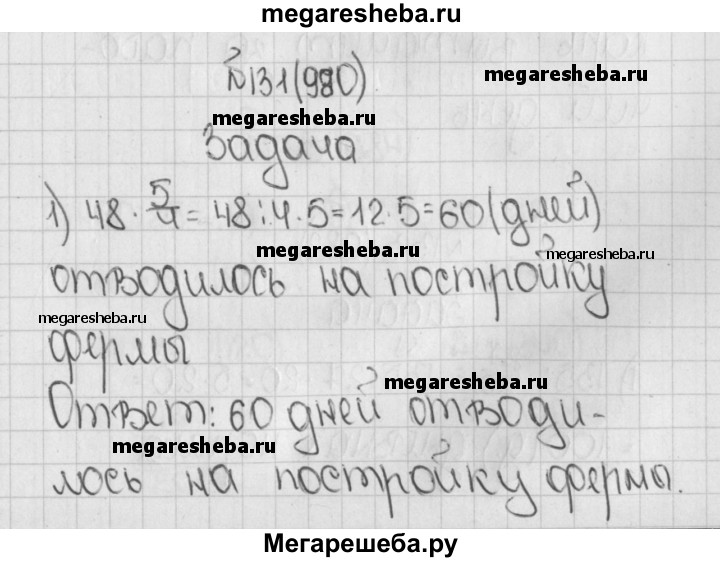 megaresheba.ru
№131(980).
megaresheba.ru
megaresheba.ru
Задача
1) 48 · 5/4 = 48:4·5=12·5=60(дней)
megaresheba.ru
megaresheba.ru
отводилось на постройку
megaresheba.ru
фермы
megaresheba.ru
Ответ: 60 дней отводи-
megaresheba.ru
лось на постройку фермы.
Мегарешеба.ру